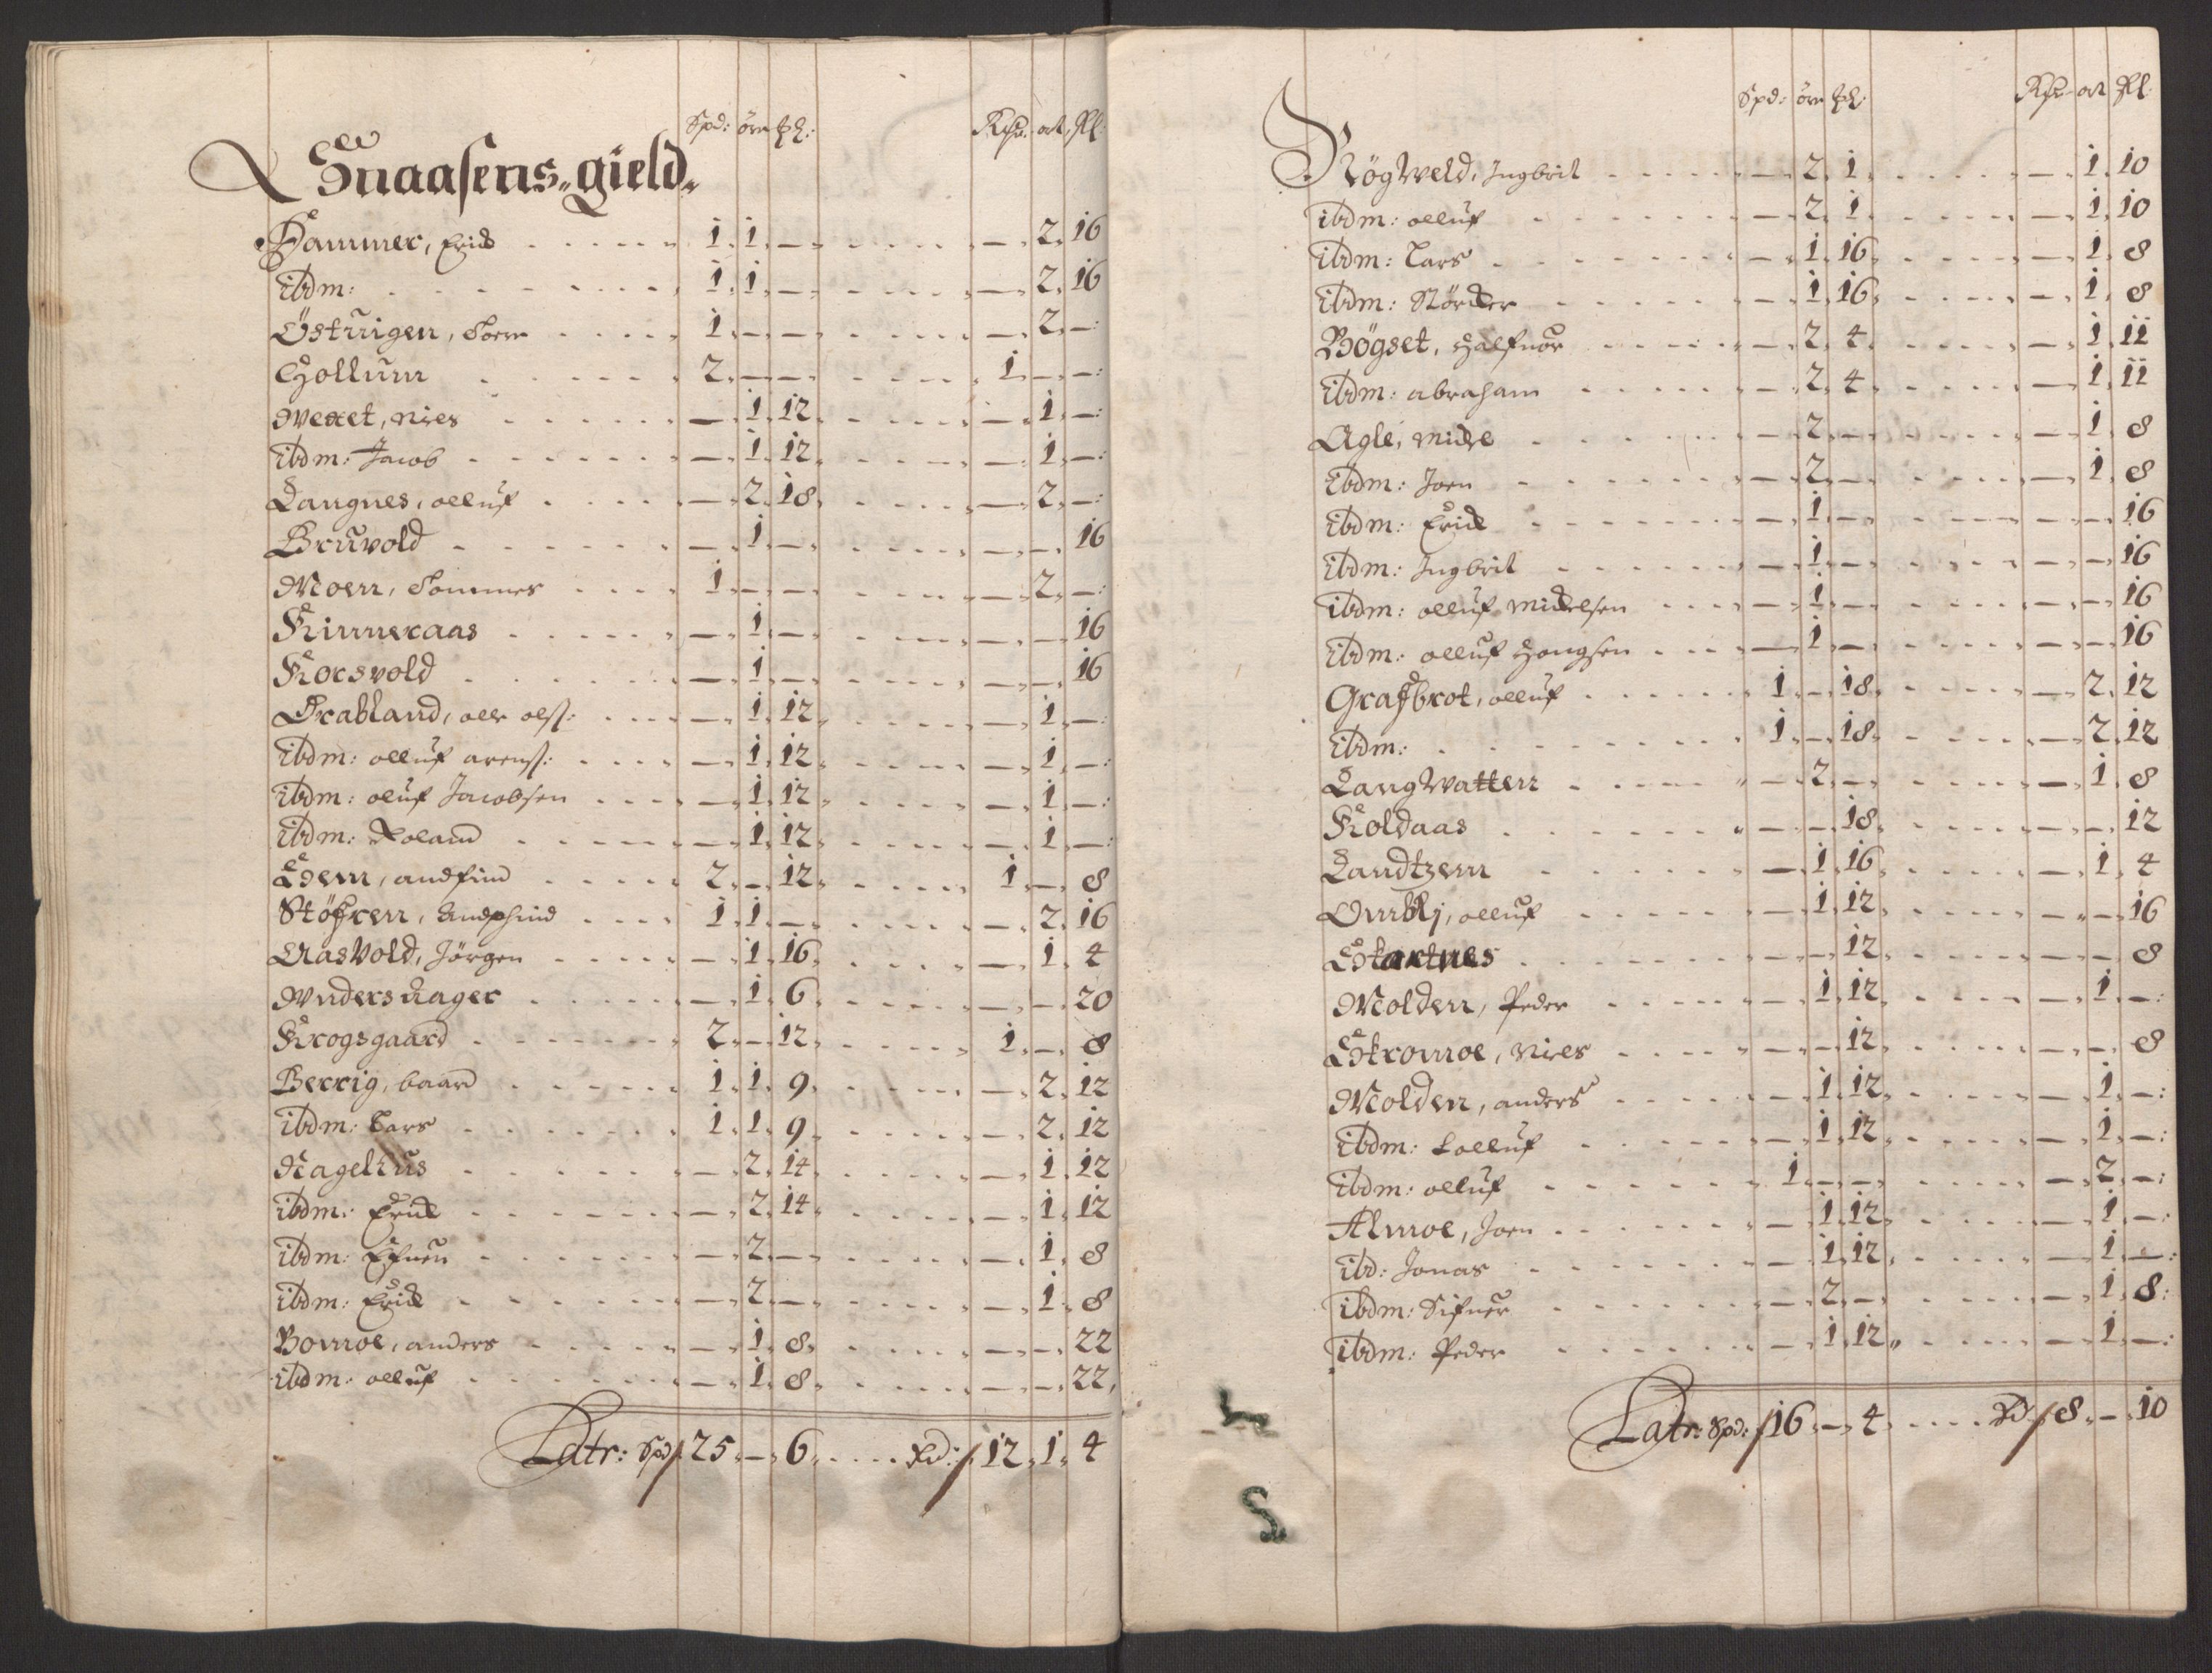 Spd: öre ... Rdr. ort. Sl:
Snaasens gield
Hammer, Erick 1. 1. — — 2. 16
ibdm: 1. 1. — — 2. 16
Östuigen, 1. — — — 2. —
Hollum 2. — — 1. — —
Wextet, Niels — 1. 12. — 1. —
ibdm: Jacob — 1. 12. — 1. —
Langnes, olluf — 2. 18. — 2. —
Bruvold — 1. — — — 16
Moen, Tommes 1. — — — 2. —
Kinneraas — 1. — — — 16
Korsvold — 1. — — — 16
Grabland, olle olss: — 1. 12. — 1. —
ibdm: olluf arenss: — 1. 12. — 1. —
ibdm: oluf Jacobsen — 1. 12. — 1. —
ibdm: Roland — 1. 12. — 1. —
Edem, andfind 2. — 12. 1. — 8
Stöfren, Andphind 1. 1. — — 2. 16
Aasvold, Jörgen — 1. 16. — 1. 4
Wudersdager — 1. 6. — — 20
Krogsgaard 2. — 12. 1. — 8
Berrig, baard 1. 1. 9. — 2. 12
ibdm: Lars 1. 1. 9. — 2. 12
Nagelhus — 2. 14. — 1. 12
ibdm: Erick — 2. 14. — 1. 12
ibdm: — 2. — — 1. 8
ibdm: Erick — 2. — — 1. 8
Bomoe, anders — 1. 8. — — 22
ibdm: olluf — 1. 8. — — 22
Latr: Spd: 25. — 6. Rd: 12. 1. 4
Spd: öre ... Rdr. ort Sl:
Rögweld, Ingbrit — 2. 1. — 1. 10
ibdm: olluf — 2. 1. — 1. 10
ibdm: Lars — 1. 16. — 1. 8
ibdm: Störcker — 1. 16. — 1. 8
Bögset, Halfuor — 2. 4. — 1. 11
ibdm: abraham — 2. 4. — 1. 11
Agle, Michel — 2. — — 1. 8
ibdm: Joen — 2. — — 1. 8
ibdm: Erick — 1. — — — 16
ibdm: Ingbrit — 1. — — — 16
ibdm: olluf Mickelsen — 1. — — — 16
ibdm: olluf Hongsen — 1. — — — 16
Grafbrot, olluf 1. — 18. — 2. 12
ibdm: 1. — 18. — 2. 12
Langwatten — 2. — — 1. 8
Koldaas — — 18. — — 12
Landtzem — 1. 16. — 1. 4
Ombli, olluf — 1. 12. — — 16
Startnes — — 12. — — 8
Molden, Peder — 1. 12. — 1. —
Stromoe, Niels — — 12. — — 8
Molden, anders — 1. 12. — 1. —
ibdm: Tolluf — 1. 12. — 1. —
ibdm: olluf 1. — — — 2. —
Almoe, Joen — 1. 12. — 1. —
ibd: Jonas — 1. 12. — 1. —
ibdm: Sifuer — 2. — — 1. 8
ibdm: Peder — 1. 12. — 1. —
Latr: Spd: 16. — 4. Rd 8. — 10